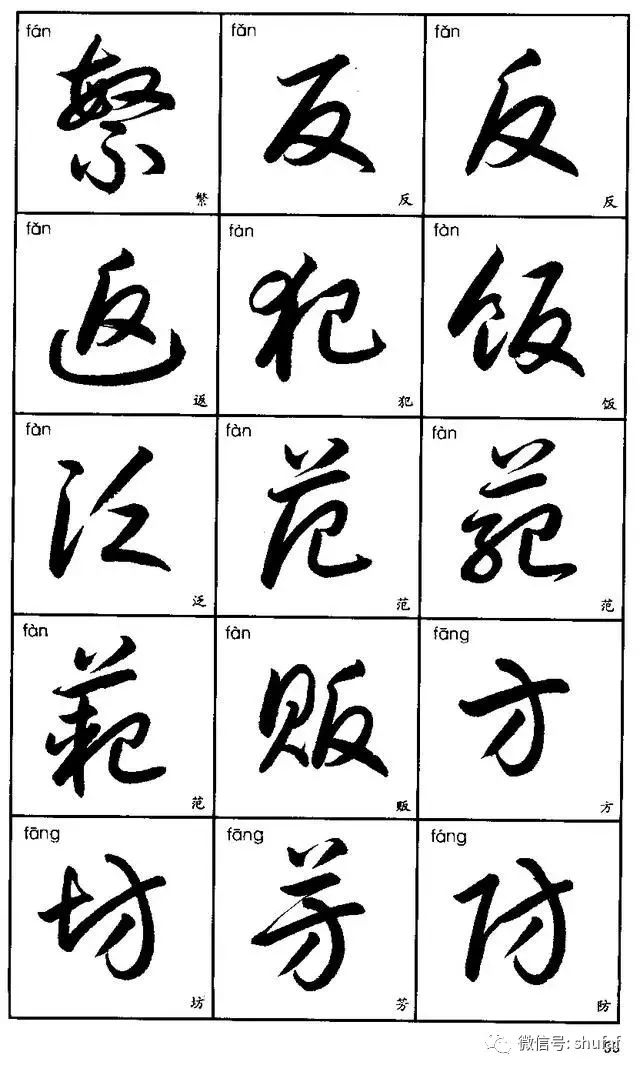 fán fǎn fǎn
繁 反 反
繁 反 反
fǎn fàn fàn
返 犯 饭
返 犯 饭
fàn fàn fàn
泛 范 范
泛 范 范
fàn fàn fāng
范 贩 方
范 贩 方
fāng fāng fáng
坊 芳 防
坊 芳 防
微信号: shufaf